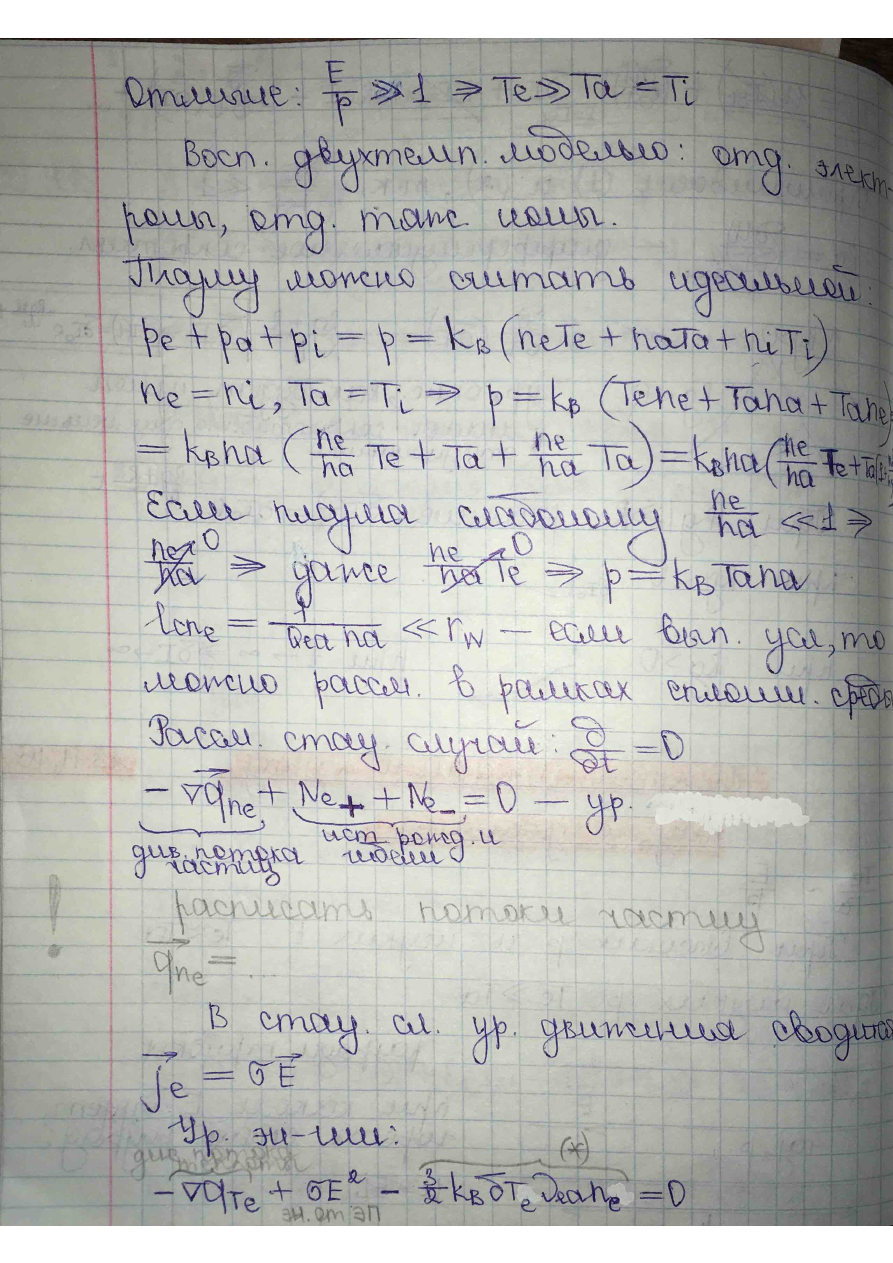 Отличие: E/p ≫ 1 ⇒ Te ≫ Ta = Ti
Восп. двухтемп. моделью: отд. элект-
роны, отд. тяж. ионы.
Плазму можно считать идеальной:
pe + pa + pi = p = kB (neTe + naTa + niTi)
ne = ni, Ta = Ti ⇒ p = kB (Tene + Tana + Tane)
= kBna (ne/na Te + Ta + ne/na Ta) = kBna (ne/na Te + Ta(1+
Если плазма слабоиониз ne/na ≪ 1 ⇒
ne/na → 0 ⇒ даже ne/na Te → 0 ⇒ p = kBTana
lспe = 1/(Qea na) ≪ rw — если вып. усл, то
можно рассм. в рамках сплошн. среды
Рассм. стац. случай: ∂/∂t = 0
− ∇qne + Ne+ + Ne− = 0 — ур.
див. потока частиц
ист рожд. и гибели
! расписать потоки частиц
qne = ...
В стац. сл. ур. движения сводится
je = σE
Ур. эн-гии:
(*)
− ∇qTe + σE² − 3/2 kB δTe νea ne = 0